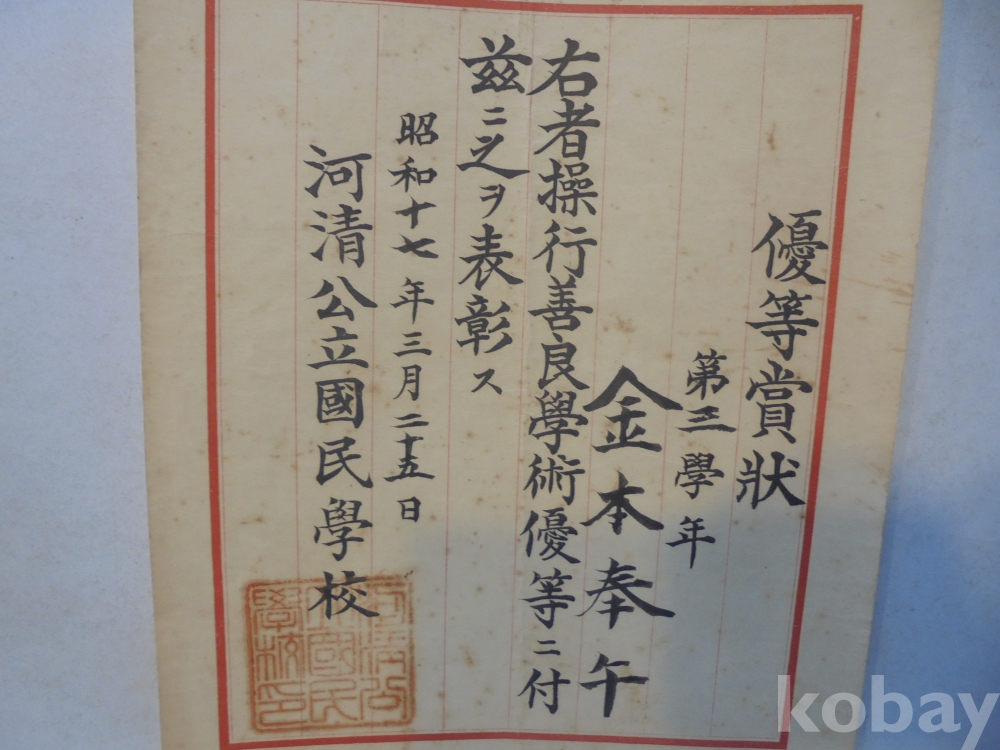 優等賞狀
第三學年
金本奉午
右者操行善良學術優等ニ付
兹ニ之ヲ表彰ス
昭和十七年三月二十五日
河清公立國民學校
河清公
立國民
學校印
kobay